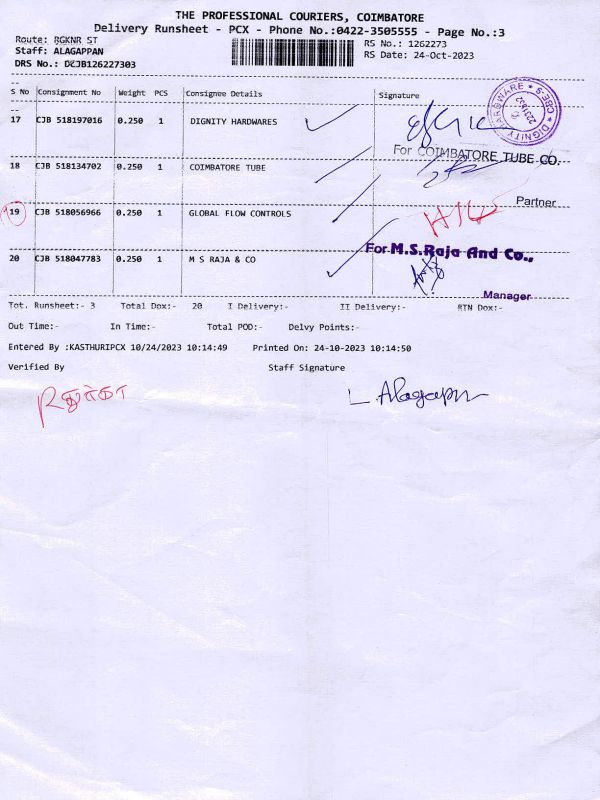 THE PROFESSIONAL COURIERS, COIMBATORE
Delivery Runsheet - PCX - Phone No.:0422-3505555 - Page No.:3
Route: RGKNR ST
RS No.: 1262273
Staff: ALAGAPPAN
RS Date: 24-Oct-2023
DRS No.: DCJB126227303
S No Consignment No Weight PCS Consignee Details Signature
17 CJB 518197016 0.250 1 DIGNITY HARDWARES
DIGNITY HARDWARE ★ CBE-5 ★
For COIMBATORE TUBE CO.
18 CJB 518134702 0.250 1 COIMBATORE TUBE
Partner
19 CJB 518056966 0.250 1 GLOBAL FLOW CONTROLS
For M.S.Raja And Co.,
20 CJB 518047783 0.250 1 M S RAJA & CO
Manager
Tot. Runsheet:- 3 Total Dox:- 20 I Delivery:- II Delivery:- RTN Dox:-
Out Time:- In Time:- Total POD:- Delvy Points:-
Entered By :KASTHURIPCX 10/24/2023 10:14:49 Printed On: 24-10-2023 10:14:50
Verified By Staff Signature
L. Alagappn